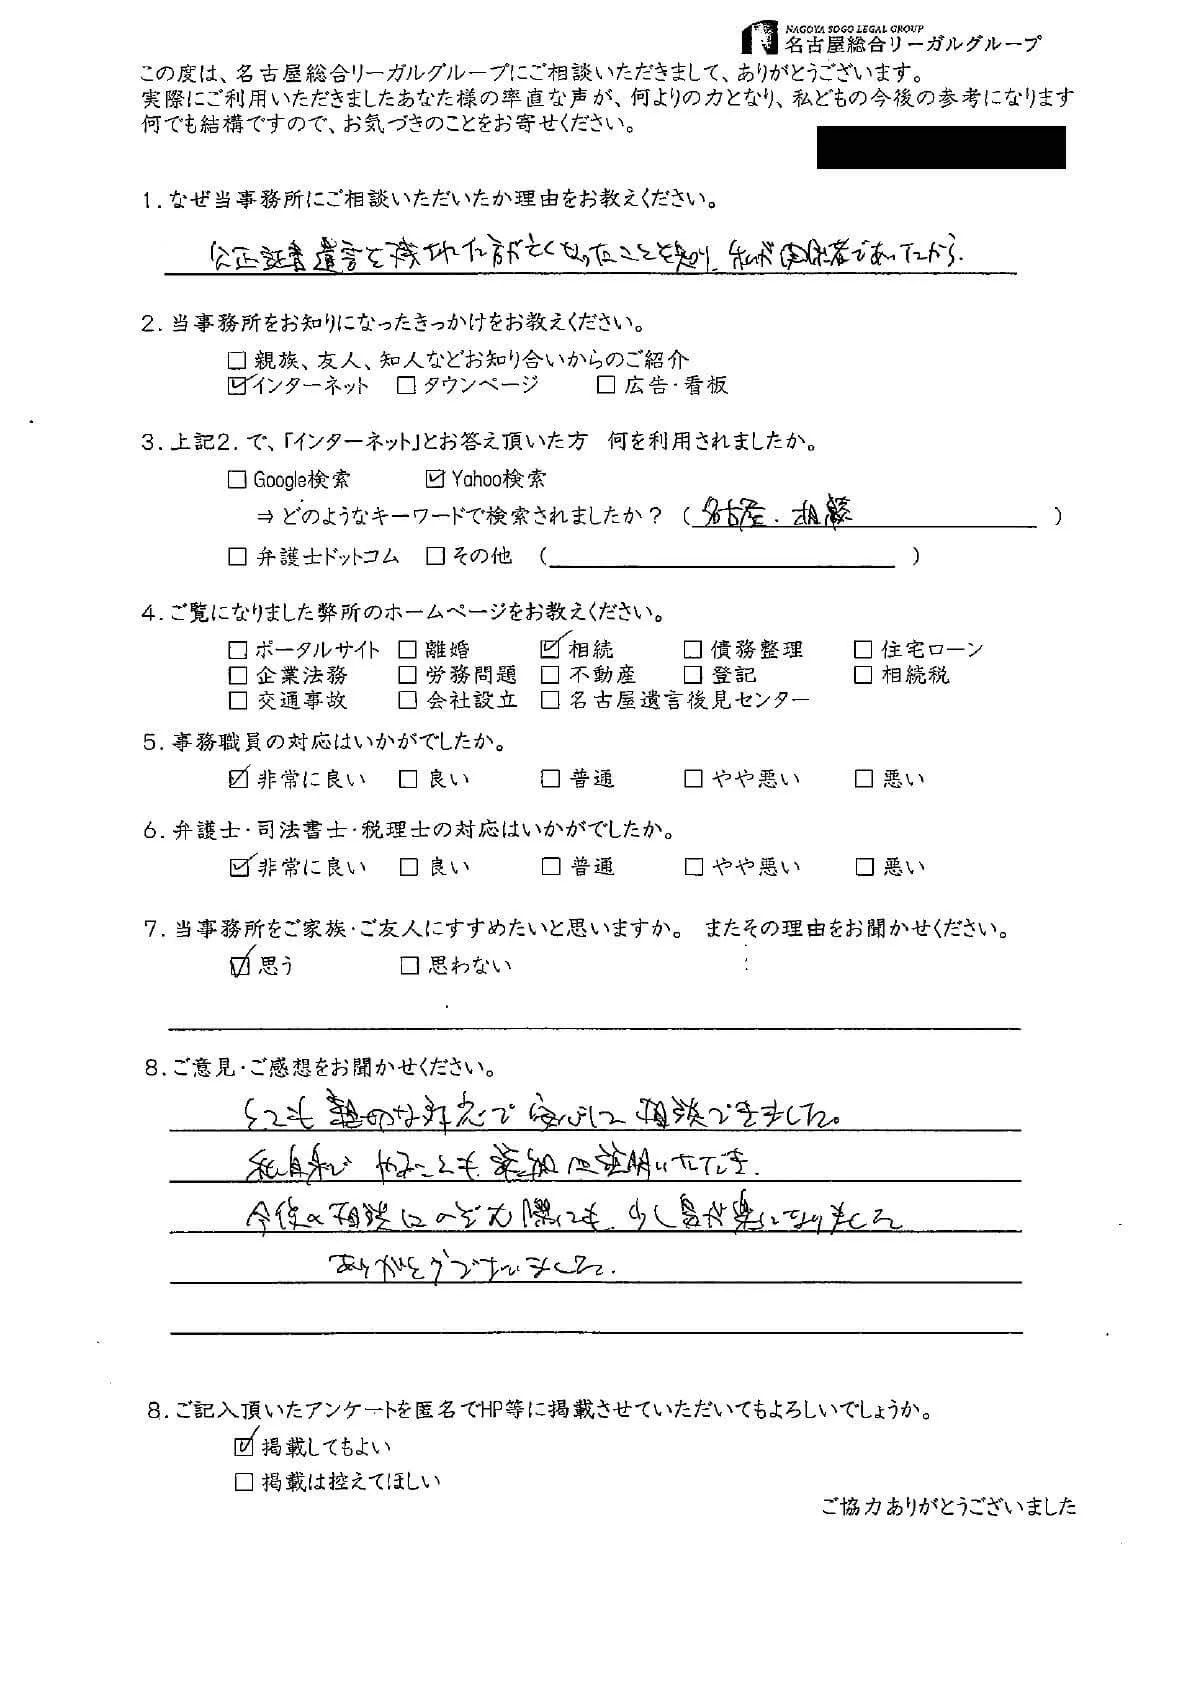 NAGOYA SOGO LEGAL GROUP
名古屋総合リーガルグループ
この度は、名古屋総合リーガルグループにご相談いただきまして、ありがとうございます。
実際にご利用いただきましたあなた様の率直な声が、何よりの力となり、私どもの今後の参考になります
何でも結構ですので、お気づきのことをお寄せください。
1. なぜ当事務所にご相談いただいたか理由をお教えください。
公正証書遺言を残された方が亡くなったことを知り、私が関係者であったから.
2. 当事務所をお知りになったきっかけをお教えください。
□ 親族、友人、知人などお知り合いからのご紹介
☑インターネット □ タウンページ □ 広告・看板
3. 上記2. で、「インターネット」とお答え頂いた方 何を利用されましたか。
□ Google検索 ☑ Yahoo検索
⇒ どのようなキーワードで検索されましたか？ （名古屋. 相続）
□ 弁護士ドットコム □ その他 （ ）
4. ご覧になりました弊所のホームページをお教えください。
□ ポータルサイト □ 離婚 ☑ 相続 □ 債務整理 □ 住宅ローン
□ 企業法務 □ 労務問題 □ 不動産 □ 登記 □ 相続税
□ 交通事故 □ 会社設立 □ 名古屋遺言後見センター
5. 事務職員の対応はいかがでしたか。
☑ 非常に良い □ 良い □ 普通 □ やや悪い □ 悪い
6. 弁護士・司法書士・税理士の対応はいかがでしたか。
☑ 非常に良い □ 良い □ 普通 □ やや悪い □ 悪い
7. 当事務所をご家族・ご友人にすすめたいと思いますか。 またその理由をお聞かせください。
☑ 思う □ 思わない
8. ご意見・ご感想をお聞かせください。
とても親切な対応で安心して相談できました。
私自身が やることも 詳細に説明いただき.
今後の相談にのぞむ際にも、少し気が楽になりました
ありがとうございました.
8. ご記入頂いたアンケートを匿名でHP等に掲載させていただいてもよろしいでしょうか。
☑ 掲載してもよい
□ 掲載は控えてほしい
ご協力ありがとうございました